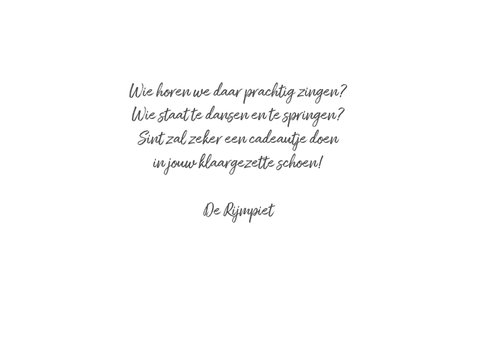 Wie horen we daar prachtig zingen?
Wie staat te dansen en te springen?
Sint zal zeker een cadeautje doen
in jouw klaargezette schoen!
De Rijmpiet